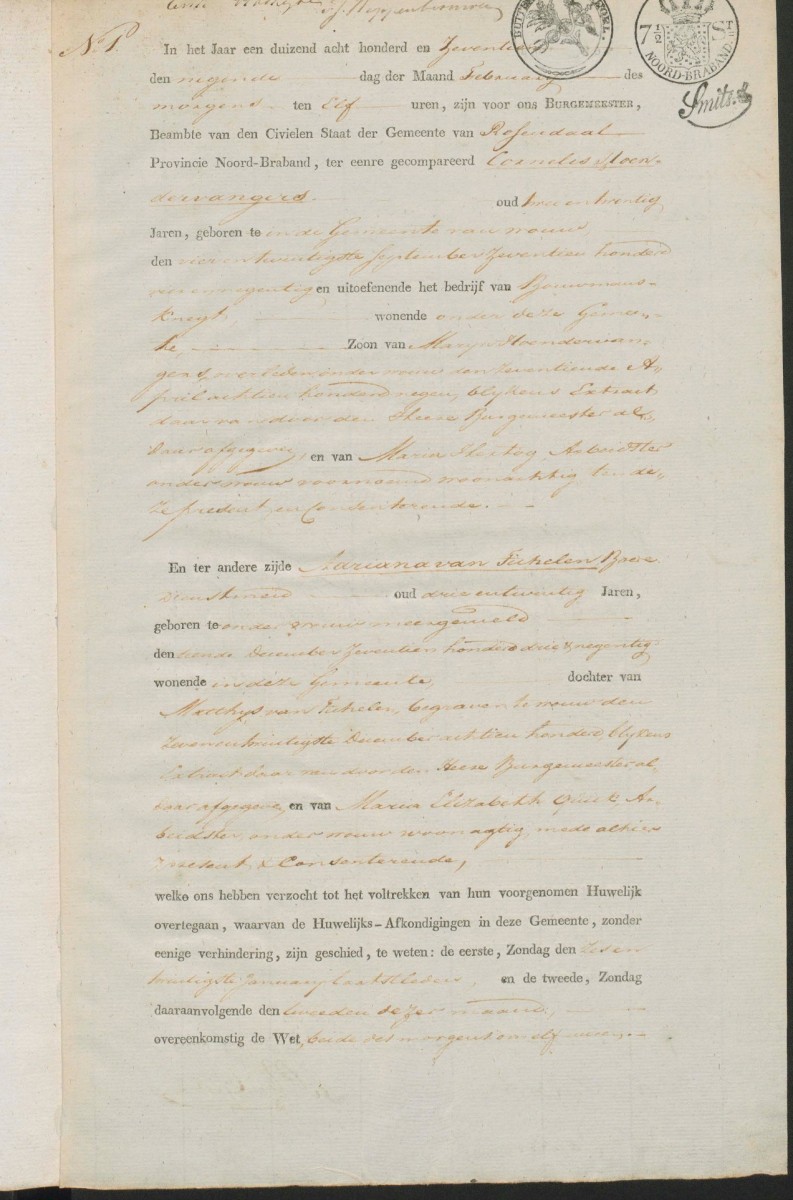 BUITEN
7½ ST
NOORD-BRABAND.
Smits
N. 1.
In het Jaar een duizend acht honderd en Zeventien
den negende dag der Maand February des
morgens ten Elf uren, zijn voor ons BURGEMEESTER,
Beambte van den Civielen Staat der Gemeente van Rosendaal
Provincie Noord-Braband, ter eenre gecompareerd Cornelis Hoen-
dervangers oud twee en twintig
Jaren, geboren te in de Gemeente van wouw,
den vier en twintigste September Zeventien honderd
vier en negentig en uitoefenende het bedrijf van Bouwmans-
knegt, wonende onder deze Gemeen-
te, Zoon van Maryn Hoendervan-
gers, overleden onder wouw den Zeventiende A-
pril achtien honderd negen, blykens Extract
daar van door den Heere Burgemeester al-
daar afgegeven, en van Maria Hertog Arbeidster
onder wouw voornoemd woonachtig ten de-
ze present en Consenterende.
En ter andere zijde Adriana van Tichelen Boere
Dienstmeid oud drie en twintig Jaren,
geboren te onder wouw meergemeld
den tiende December Zeventien honderd drie & negentig
wonende in deze Gemeente, dochter van
Matthys van Tichelen, begraven te wouw den
Zeven en twintigste December achtien honderd blykens
Extract daar van door den Heere Burgemeester al
daar afgegeve, en van Maria Elizabeth Ar-
beidster, onder wouw woonagtig, mede alhier
present & Consenterende,
welke ons hebben verzocht tot het voltrekken van hun voorgenomen Huwelijk
overtegaan, waarvan de Huwelijks-Afkondigingen in deze Gemeente, zonder
eenige verhindering, zijn geschied, te weten: de eerste, Zondag den Zes en
twintigste January laatstleden, en de tweede, Zondag
daaraanvolgende den tweeden dezer maand,
overeenkomstig de Wet, beide des morgens om elf uren,